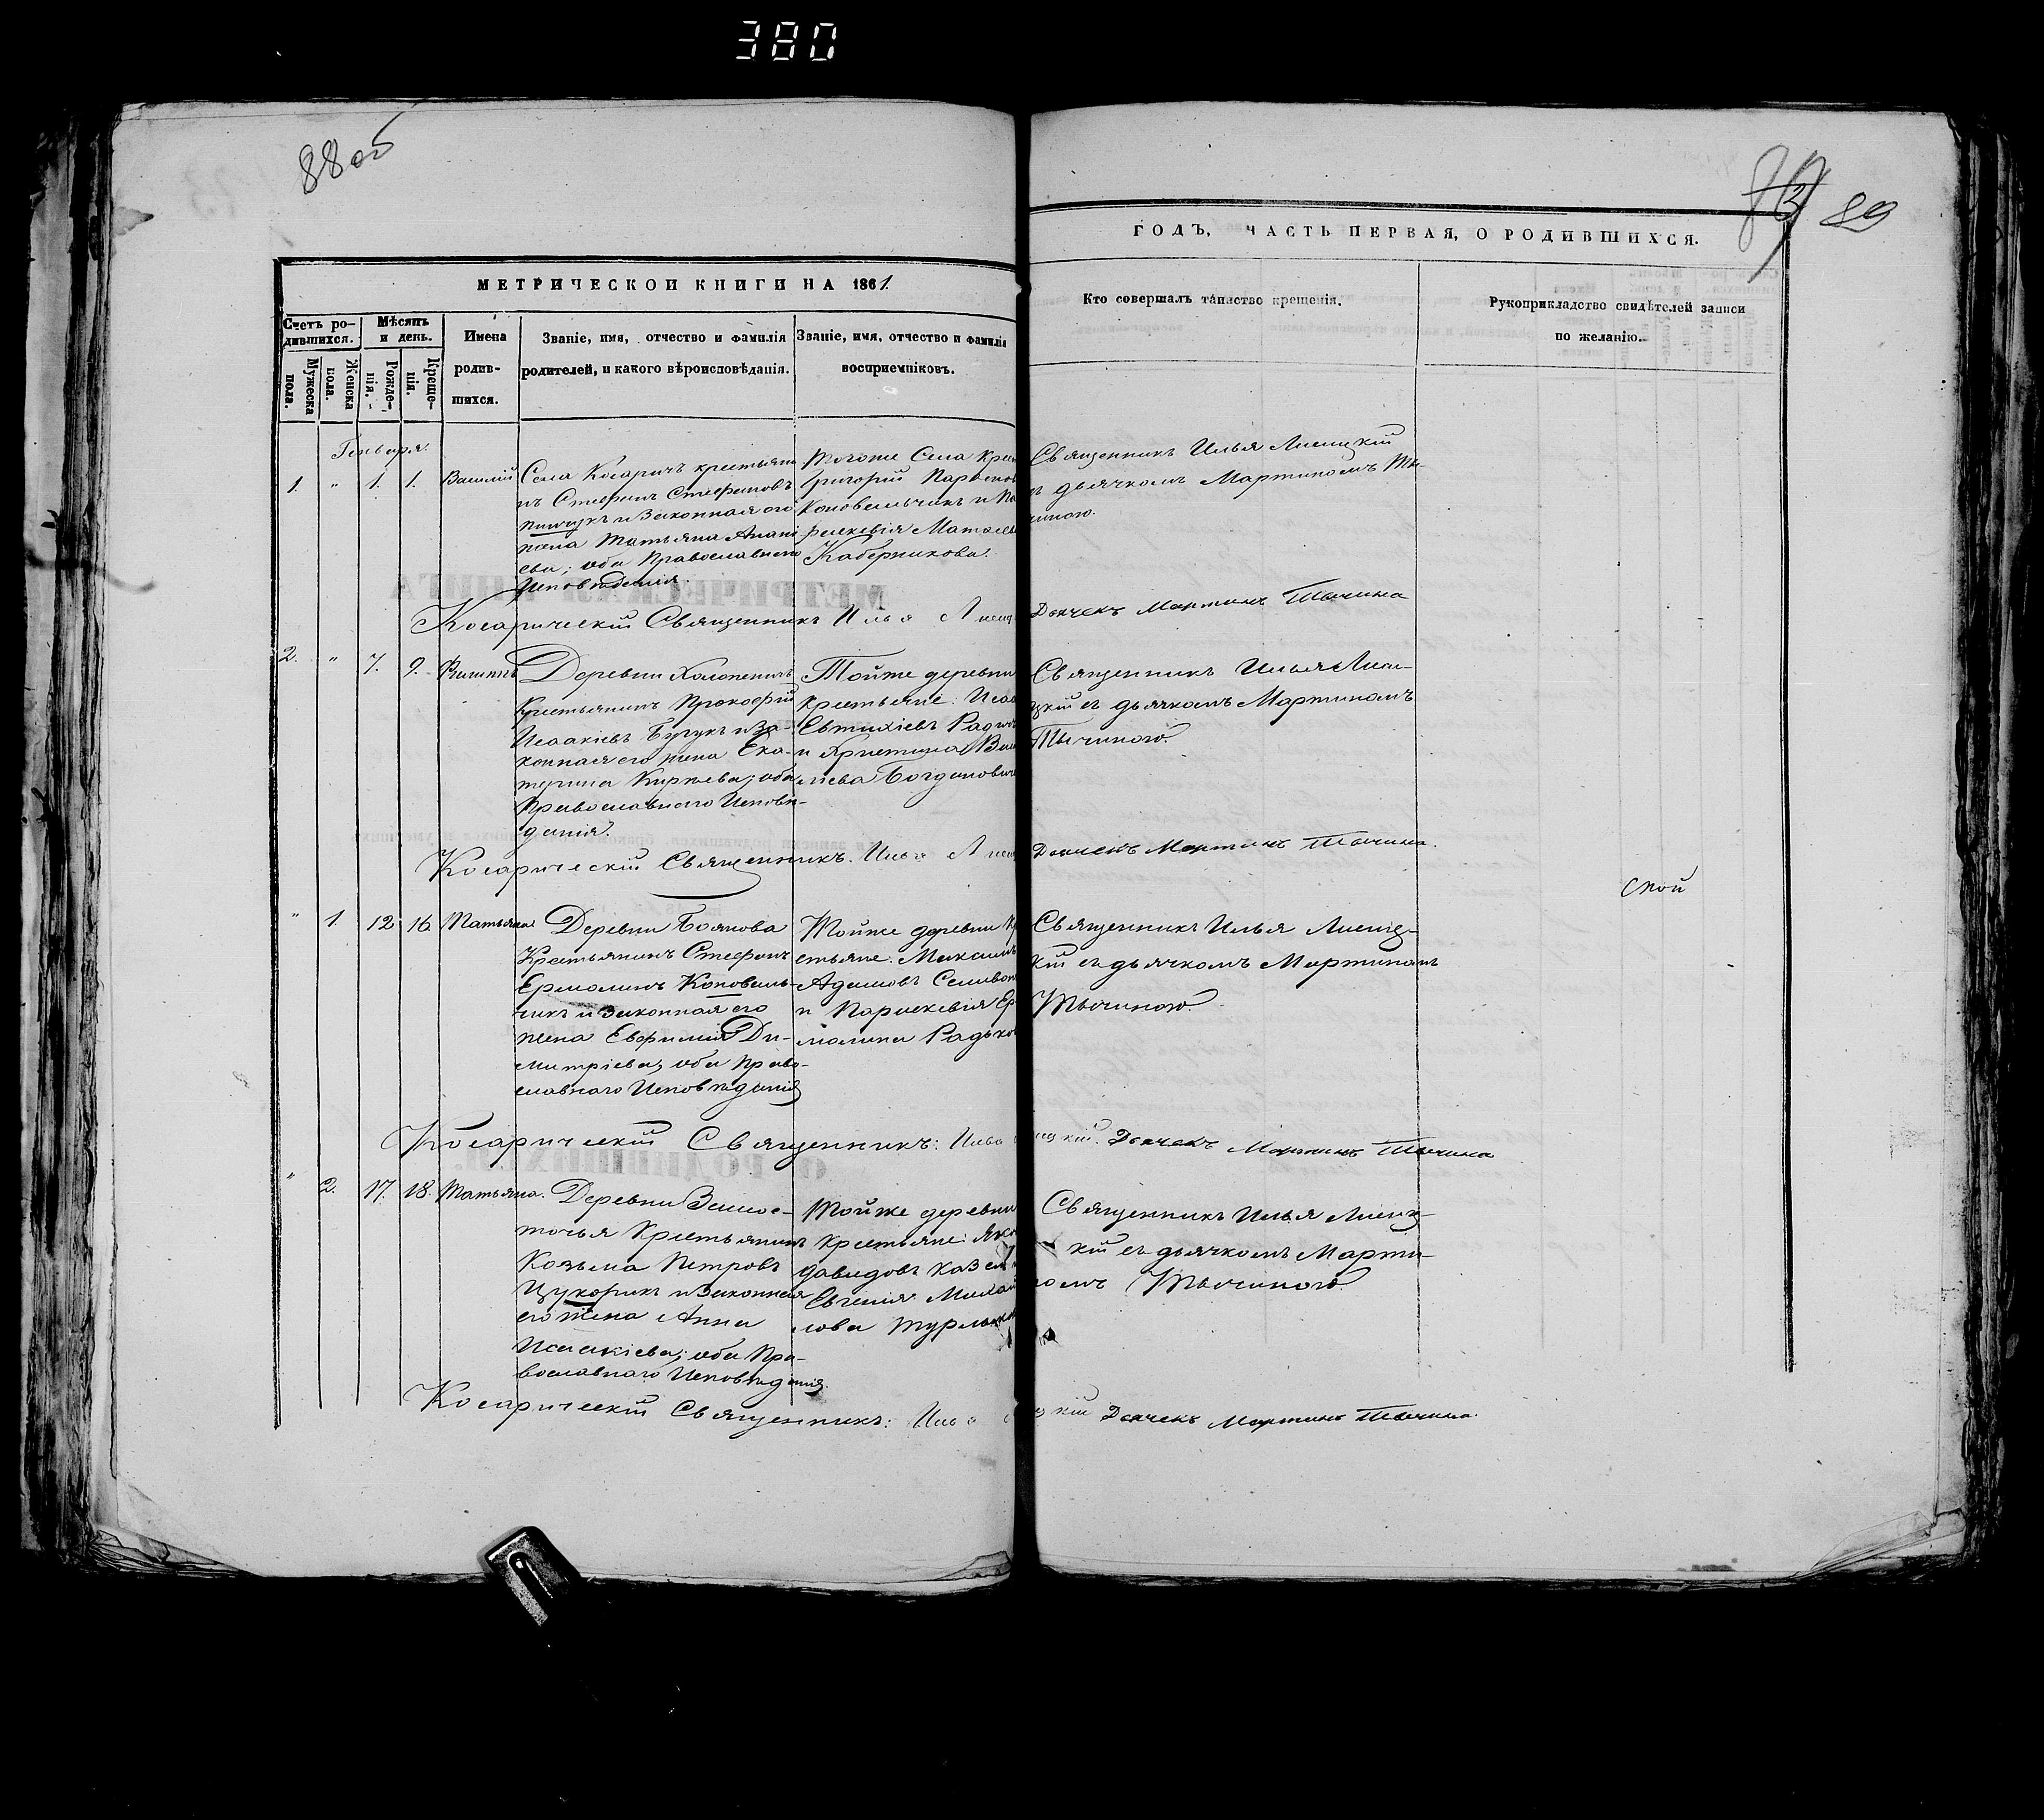 380
88 об
89
МЕТРИЧЕСКОЙ КНИГИ НА 1861.
ГОДЪ, ЧАСТЬ ПЕРВАЯ, О РОДИВШИХСЯ.
Счетъ ро-
дившихся.
Мужеска пола.
Женска пола.
Мѣсяцъ
и день.
Рожде-
нія.
Креще-
нія.
Имена
родив-
шихся.
Званіе, имя, отчество и фамилія
родителей, и какого вѣроисповѣданія.
Званіе, имя, отчество и фамилія
воспріемніковъ.
Кто совершалъ таинство крещенія.
Рукоприкладство свидѣтелей записи
по желанію.
Генваря.
1. " 1. 1. Василій
Села Косаричъ крестьяни
нъ Стефанъ Стефановъ
и Законная его
жена Татьяна Анані
ева; оба Православнаго
Исповѣданія.
Тогоже Села Крес
Григорій
Коновальчикъ и Па
раскевія
Каберникова.
Священникъ Илья Лисицкій
съ дьячкомъ Мартиномъ Ты-
чиною.
Косаричскій Священникъ Илья Лисиц
Дьячекъ Мартинъ Тычина
2. " 7. 9.
Деревни Холопеничъ
Крестьянинъ Прокофій
Исаакіевъ и За-
конная его жена Ека-
терина оба
Православнаго Исповѣ-
данія.
Тойже деревни
крестьяне: Исаа
Евтихіевъ
и Христина Васи
льева Богданович
Священникъ Илья Лиси-
цкій съ дьячкомъ Мартиномъ
Тычиною.
Косаричскій Священникъ. Илья Лисиц
Дьячекъ Мартинъ Тычина.
" 1. 12 16. Татьяна
Деревни Боянова
Крестьянинъ Стефанъ
Ермолинъ Коноваль-
чикъ и Законная его
жена Евфимія Ди-
митріева; оба Право-
славнаго Исповѣданія
Тойже деревни Кр
естьяне: Максимъ
Адамовъ
и Параскевія Ер
молина Радьков
Священникъ Илья Лисиц-
кій съ дьячкомъ Мартиномъ
Тычиною.
Косаричскій Священникъ: Илья
ицкій. Дьячекъ Мартинъ Тычина
" 2. 17. 18. Татьяна.
Деревни Заинос-
точья Крестьянинъ
Козьма Петровъ
Цукорикъ и Законная
его жена Анна
Исаакіева; оба Пра-
вославнаго Исповѣданія.
Тойже деревни
крестьяне: Яко
давидовъ
Евгенія Михай
лова
Священникъ Илья Лисиц-
кій съ дьячкомъ Марти-
номъ Тычиною
Косаричскій Священникъ: Илья
цкій Дьячекъ Мартинъ Тычина.